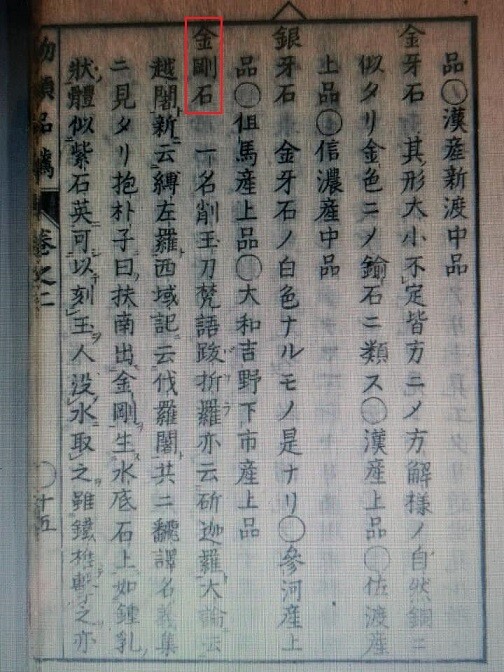 品○漢産新渡中品
金牙石 其形大小不定皆方ニノ方解様ノ自然銅ニ
似タリ金色ニノ鍮石ニ類ス○漢産上品○佐渡産
上品○信濃産中品
銀牙石 金牙石ノ白色ナルモノ是ナリ○參河産上
品○但馬産上品○大和吉野下市産上品
金剛石 一名削玉刀梵語跋折羅亦云斫迦羅大論云
越闍新云縛左羅西域記云伐羅闍共ニ飜譯名義集
ニ見タリ抱朴子曰扶南出金剛生水底石上如鍾乳
狀體似紫石英可以刻玉人没水取之雖鐵椎擊之亦
物類品隲 卷之二 ○十五